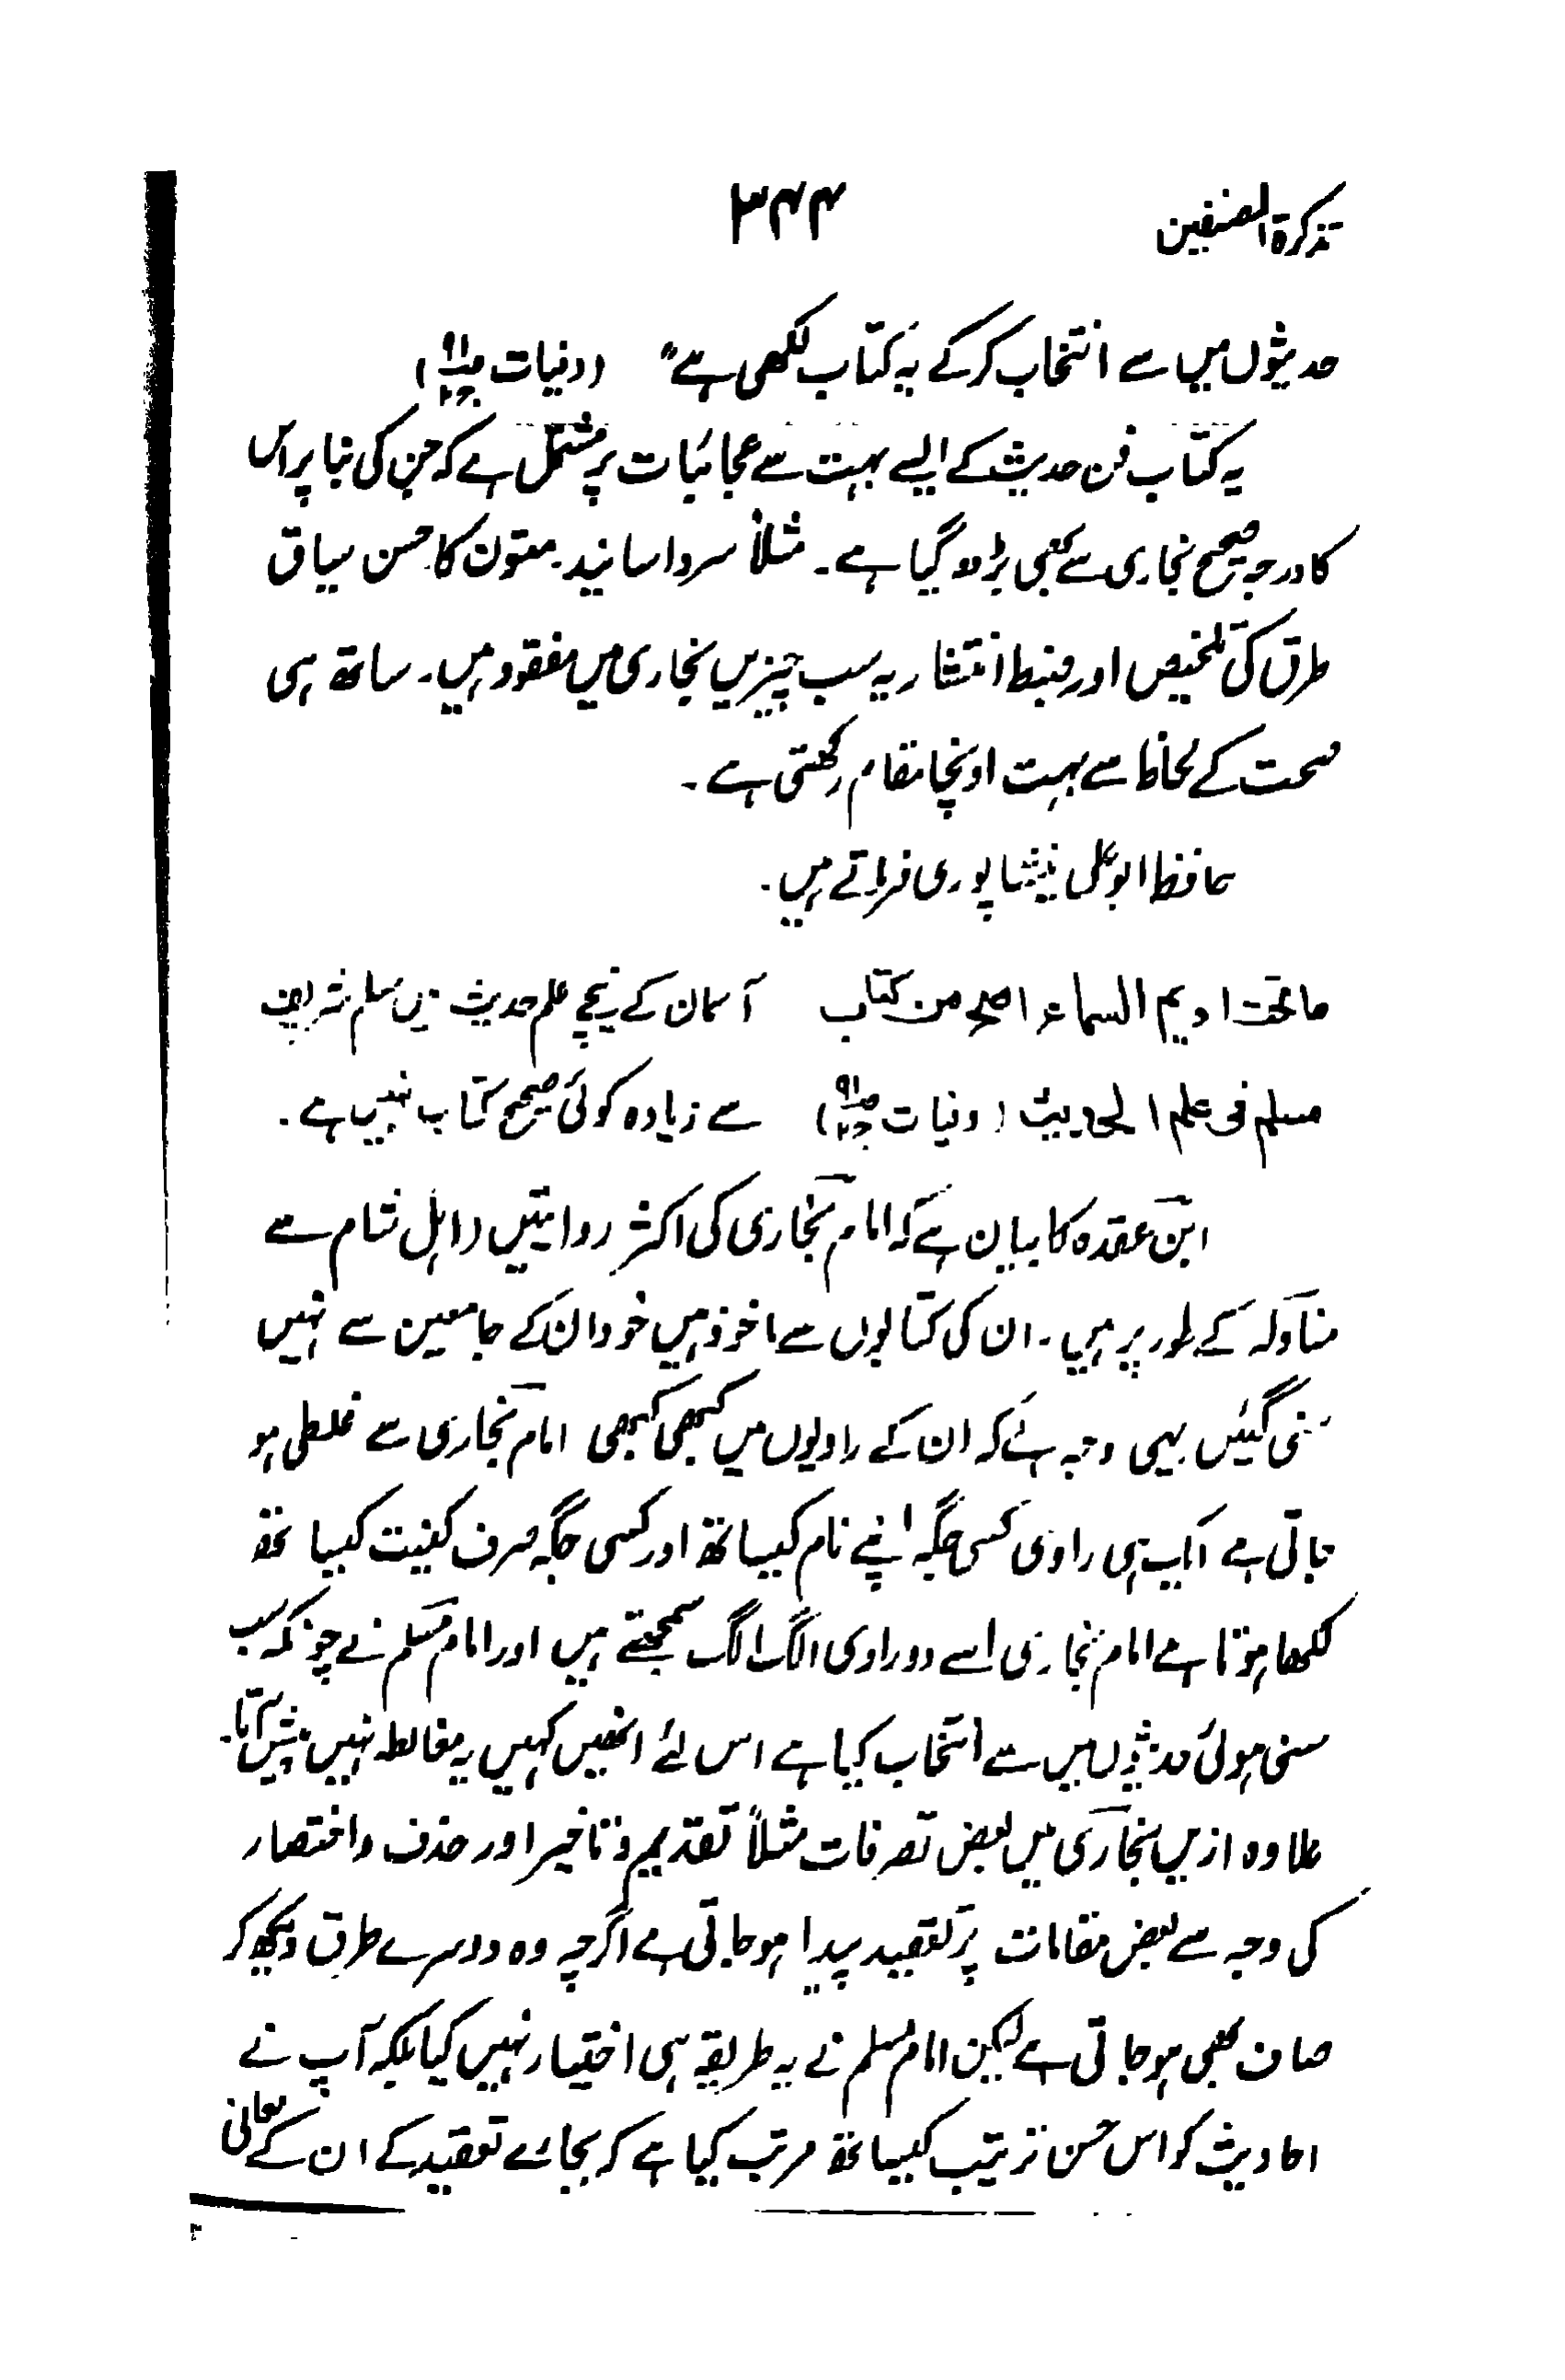 تذکرۃ المصنفین
۳۴۴
حدیثوں میں سے انتخاب کرکے یہ کتاب لکھی ہے" (وفیات ص۹۱ ج۲)
یہ کتاب فن حدیث کے ایسے بہت سے عجائبات پر مشتمل ہے کہ جن کی بنا پر اس
کا درجہ صحیح بخاری سے بھی بڑھ گیا ہے۔ مثلاً سرد اسانید۔ متون کا حسن سیاق
طرق کی تلخیص اور ضبط انتشار یہ سب چیزیں بخاری میں مفقود ہیں۔ ساتھ ہی
صحت کے لحاظ سے بہت اونچا مقام رکھتی ہے۔
حافظ ابو علی نیشاپوری فرماتے ہیں۔
ما تحت ادیم السماء اصح من کتاب آسمان کے نیچے علم حدیث میں مسلم شریف
مسلم فی علم الحدیث (وفیات ص۹۱ ج۲) سے زیادہ کوئی صحیح کتاب نہیں ہے۔
ابن عقدہ کا بیان ہے کہ امام بخاری کی اکثر روایتیں (اہل شام سے
مناولہ کے طور پر ہیں۔ ان کی کتابوں سے ماخوذ ہیں خود ان کے جامعین سے نہیں
سنی گئیں یہی وجہ ہے کہ ان کے راویوں میں کبھی کبھی امام بخاری سے غلطی ہو
جاتی ہے ایک ہی راوی کسی جگہ اپنے نام کیساتھ اور کسی جگہ صرف کنیت کیساتھ
لکھا ہوتا ہے امام بخاری اسے دو راوی الگ الگ سمجھتے ہیں اور امام مسلم نے چونکہ سب
سنی ہوئی حدیثوں میں سے انتخاب کیا ہے اس لئے انھیں کہیں یہ مغالطہ نہیں پیش آتا۔
علاوہ ازیں بخاری میں بعض تصرفات مثلاً تقدیم و تاخیر اور حذف و اختصار
کی وجہ سے بعض مقامات پر تعقید پیدا ہو جاتی ہے اگرچہ وہ دوسرے طرق دیکھ کر
صاف بھی ہو جاتی ہے لیکن امام مسلم نے یہ طریقہ ہی اختیار نہیں کیا بلکہ آپ نے
احادیث کو اس حسن ترتیب کیساتھ مرتب کیا ہے کہ بجائے تعقید کے ان کے معانی